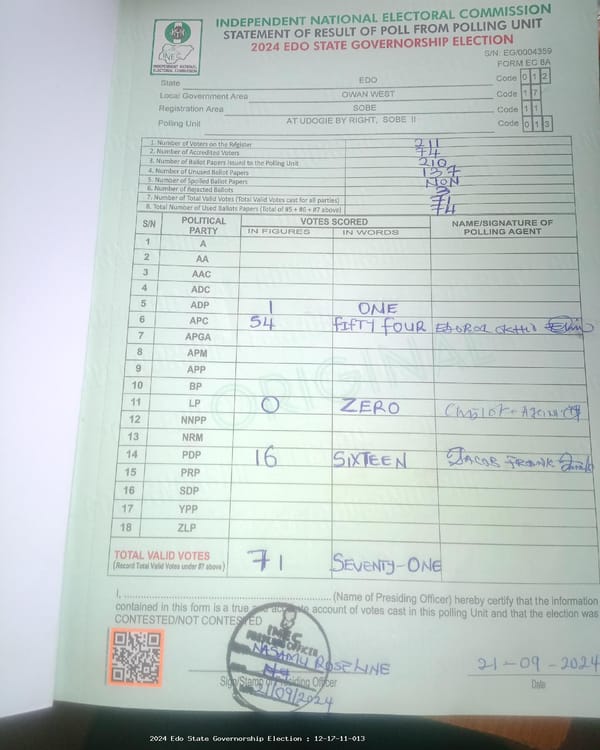 INDEPENDENT NATIONAL ELECTORAL COMMISSION
STATEMENT OF RESULT OF POLL FROM POLLING UNIT
2024 EDO STATE GOVERNORSHIP ELECTION
INEC
INDEPENDENT NATIONAL ELECTORAL COMMISSION
S/N: EG/0004359
FORM EG 8A
State EDO Code 0 1 2
Local Government Area OWAN WEST Code 1 7
Registration Area SOBE Code 1 1
Polling Unit AT UDOGIE BY RIGHT, SOBE II Code 0 1 3
1. Number of Voters on the Register 211
2. Number of Accredited Voters 74
3. Number of Ballot Papers Issued to the Polling Unit 210
4. Number of Unused Ballot Papers 137
5. Number of Spoiled Ballot Papers NON
6. Number of Rejected Ballots 3
7. Number of Total Valid Votes (Total Valid Votes cast for all parties) 71
8. Total Number of Used Ballots Papers (Total of #5 + #6 + #7 above) 74
S/N POLITICAL PARTY VOTES SCORED NAME/SIGNATURE OF POLLING AGENT
IN FIGURES IN WORDS
1 A
2 AA
3 AAC
4 ADC
5 ADP 1 ONE
6 APC 54 FIFTY FOUR
7 APGA
8 APM
9 APP
10 BP
11 LP 0 ZERO
12 NNPP
13 NRM
14 PDP 16 SIXTEEN JACOB FRANK
15 PRP
16 SDP
17 YPP
18 ZLP
ORIGINAL
TOTAL VALID VOTES 71 SEVENTY-ONE
(Record Total Valid Votes under #7 above)
I, (Name of Presiding Officer) hereby certify that the information
contained in this form is a true account of votes cast in this polling Unit and that the election was
CONTESTED/NOT CONTESTED
INEC
PRESIDING OFFICER
NASAMU ROSELINE
21-09-2024
Sign/Stamp of Presiding Officer
Date
21/09/2024
2024 Edo State Governorship Election : 12-17-11-013